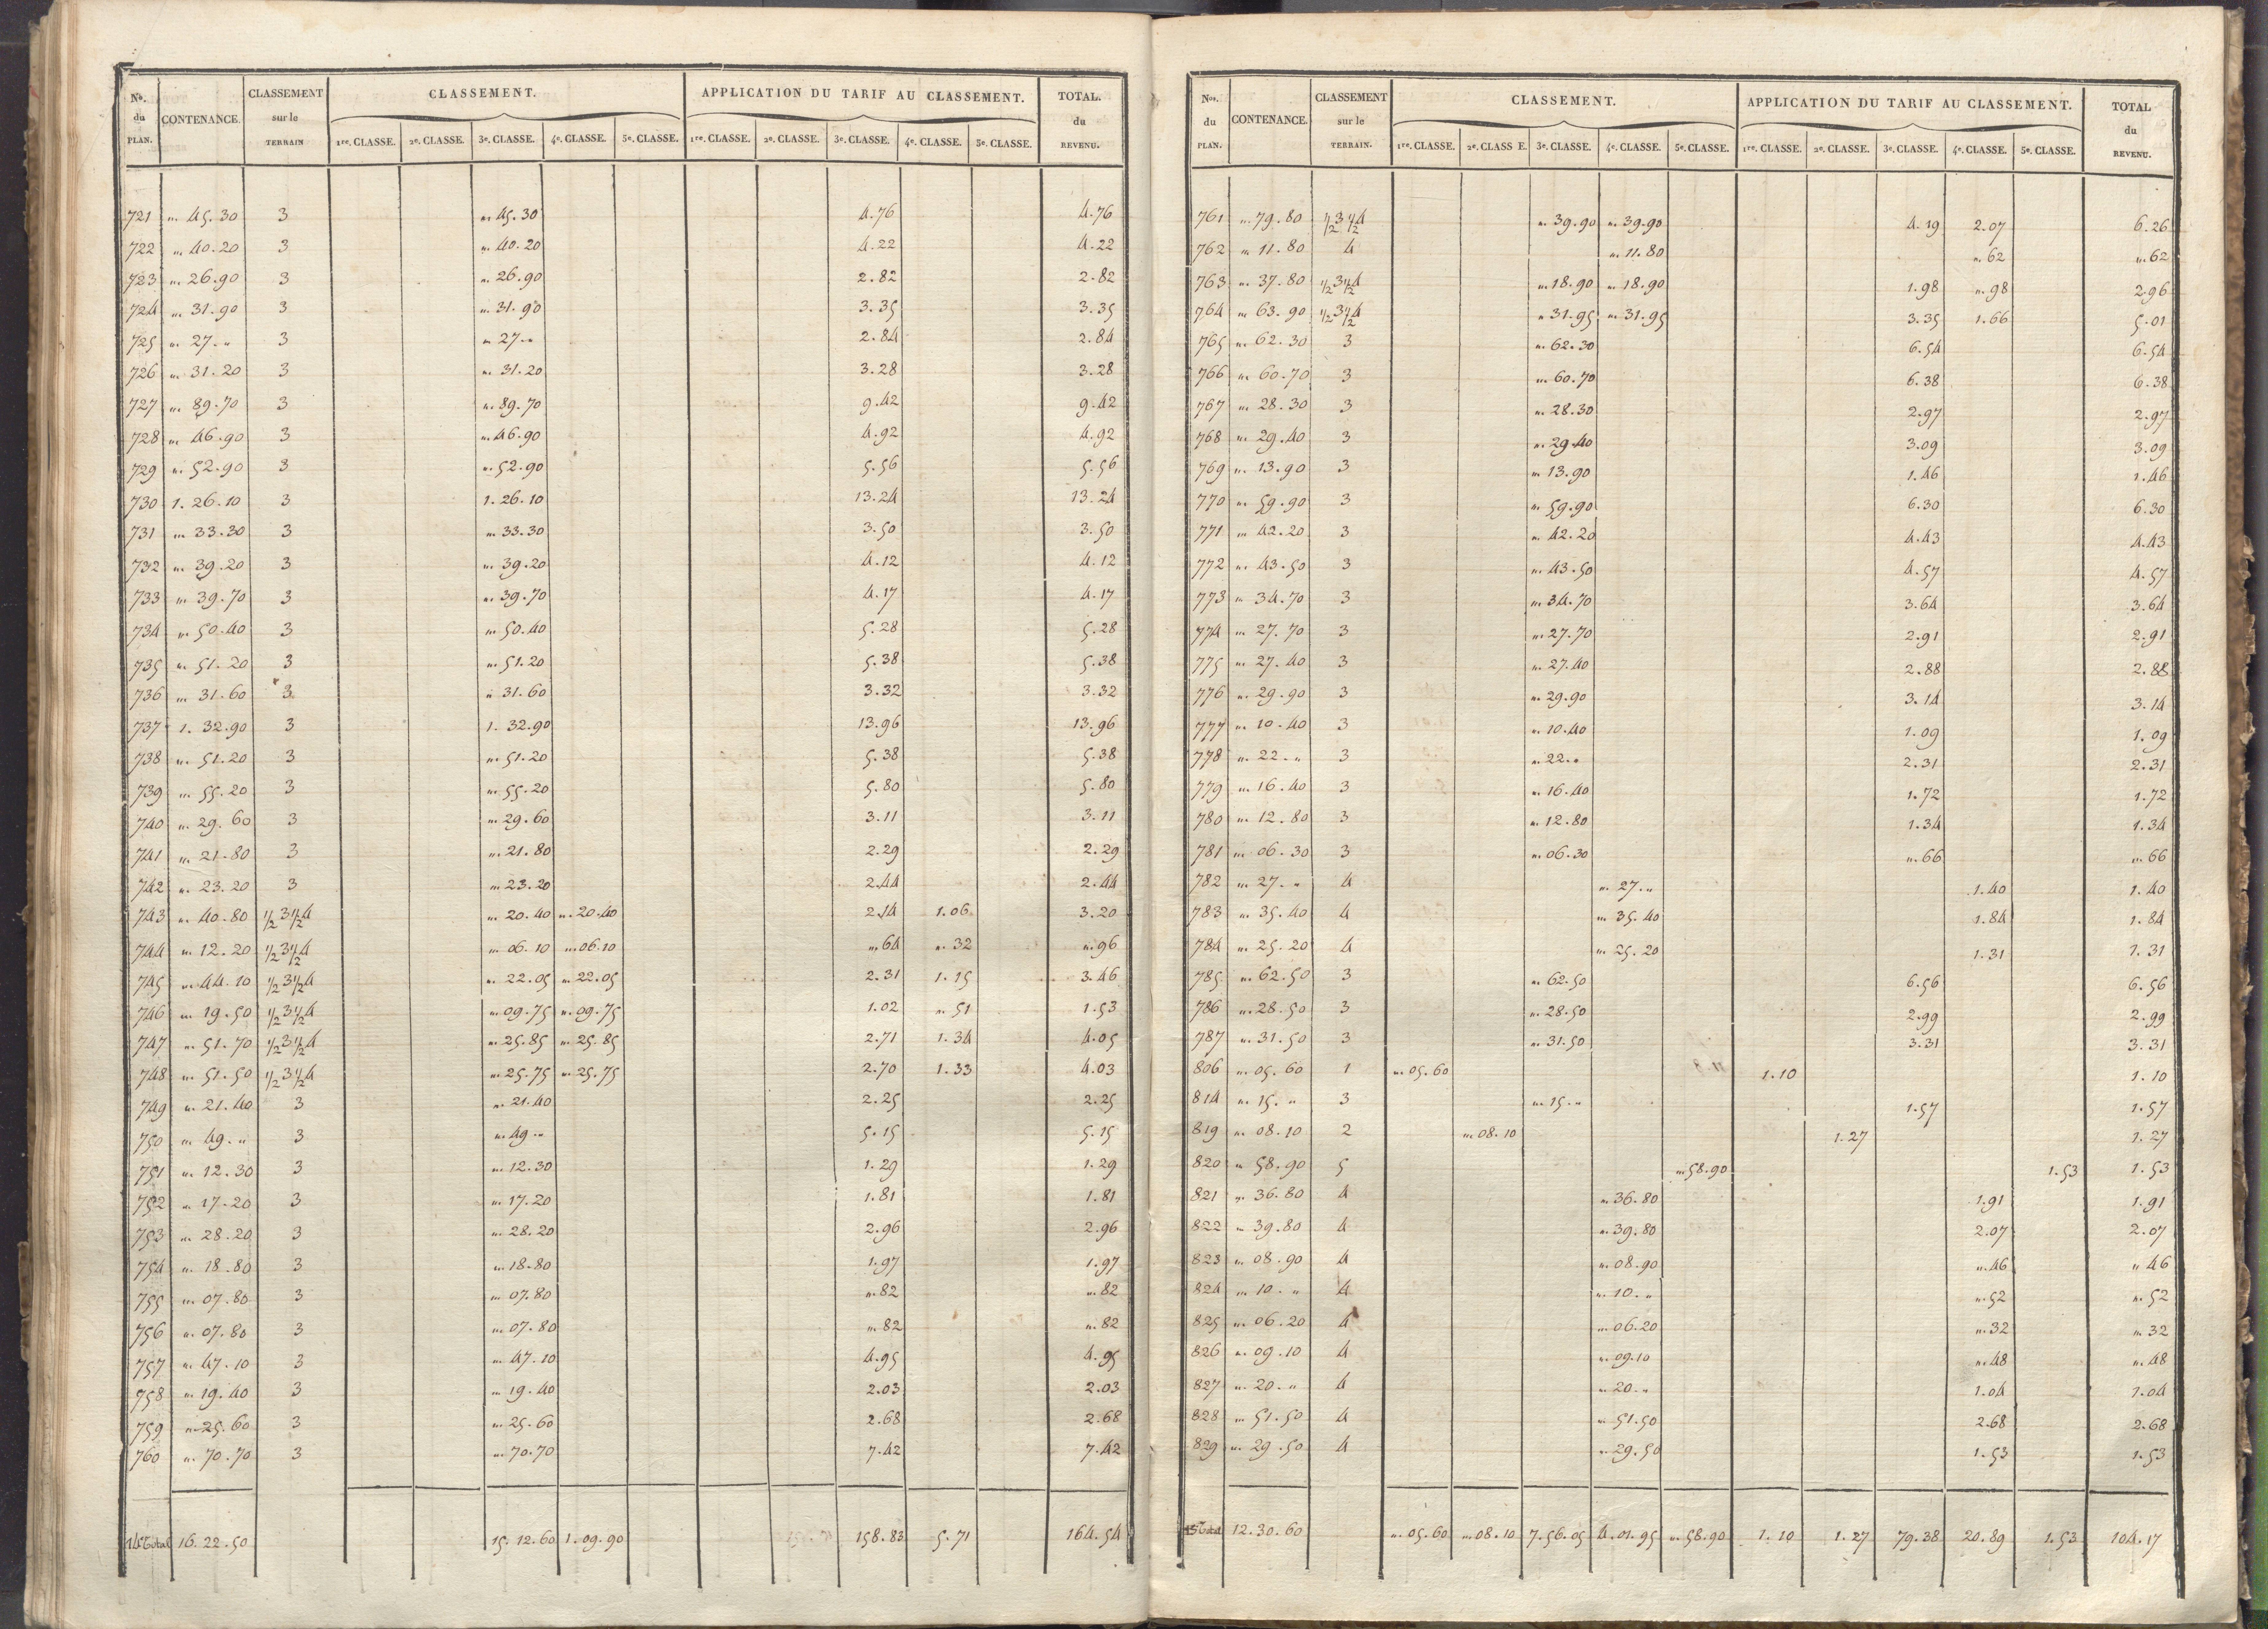 Nos. du PLAN. CONTENANCE. CLASSEMENT sur le TERRAIN CLASSEMENT. APPLICATION DU TARIF AU CLASSEMENT. TOTAL. du REVENU.
1re. CLASSE. 2e. CLASSE. 3e. CLASSE. 4e. CLASSE. 5e. CLASSE. 1re. CLASSE. 2e. CLASSE. 3e. CLASSE. 4e. CLASSE. 5e. CLASSE.
721 „. 45.30 3 „. 45.30 4.76 4.76
722 „. 40.20 3 „. 40.20 4.22 4.22
723 „. 26.90 3 „. 26.90 2.82 2.82
724 „. 31.90 3 „. 31.90 3.35 3.35
725 „. 27.„ 3 „. 27.„ 2.84 2.84
726 „. 31.20 3 „. 31.20 3.28 3.28
727 „. 89.70 3 „. 89.70 9.42 9.42
728 „. 46.90 3 „. 46.90 4.92 4.92
729 „. 52.90 3 „. 52.90 5.56 5.56
730 1. 26.10 3 1. 26.10 13.24 13.24
731 „. 33.30 3 „. 33.30 3.50 3.50
732 „. 39.20 3 „. 39.20 4.12 4.12
733 „. 39.70 3 „. 39.70 4.17 4.17
734 „. 50.40 3 „. 50.40 5.28 5.28
735 „. 51.20 3 „. 51.20 5.38 5.38
736 „. 31.60 3 „. 31.60 3.32 3.32
737 1. 32.90 3 1. 32.90 13.96 13.96
738 „. 51.20 3 „. 51.20 5.38 5.38
739 „. 55.20 3 „. 55.20 5.80 5.80
740 „. 29.60 3 „. 29.60 3.11 3.11
741 „. 21.80 3 „. 21.80 2.29 2.29
742 „. 23.20 3 „. 23.20 2.44 2.44
743 „. 40.80 1/2 3 1/2 4 „. 20.40 „. 20.40 2.14 1.06 3.20
744 „. 12.20 1/2 3 1/2 4 „. 06.10 „. 06.10 „. 64 „. 32 „. 96
745 „. 44.10 1/2 3 1/2 4 „. 22.05 „. 22.05 2.31 1.15 3.46
746 „. 19.50 1/2 3 1/2 4 „. 09.75 „. 09.75 1.02 „. 51 1.53
747 „. 51.70 1/2 3 1/2 4 „. 25.85 „. 25.85 2.71 1.34 4.05
748 „. 51.50 1/2 3 1/2 4 „. 25.75 „. 25.75 2.70 1.33 4.03
749 „. 21.40 3 „. 21.40 2.25 2.25
750 „. 49.„ 3 „. 49.„ 5.15 5.15
751 „. 12.30 3 „. 12.30 1.29 1.29
752 „. 17.20 3 „. 17.20 1.81 1.81
753 „. 28.20 3 „. 28.20 2.96 2.96
754 „. 18.80 3 „. 18.80 1.97 1.97
755 „. 07.80 3 „. 07.80 „. 82 „. 82
756 „. 07.80 3 „. 07.80 „. 82 „. 82
757 „. 47.10 3 „. 47.10 4.95 4.95
758 „. 19.40 3 „. 19.40 2.03 2.03
759 „. 25.60 3 „. 25.60 2.68 2.68
760 „. 70.70 3 „. 70.70 7.42 7.42
Total 16. 22.50 15. 12.60 1. 09.90 158.83 5.71 164.54
Nos. du PLAN. CONTENANCE. CLASSEMENT sur le TERRAIN. CLASSEMENT. APPLICATION DU TARIF AU CLASSEMENT. TOTAL du REVENU.
1re. CLASSE. 2e. CLASS E. 3e. CLASSE. 4e. CLASSE. 5e. CLASSE. 1re. CLASSE. 2e. CLASSE. 3e. CLASSE. 4e. CLASSE. 5e. CLASSE.
761 „. 79.80 1/2 3 1/2 4 „. 39.90 „. 39.90 4.19 2.07 6.26
762 „. 11.80 4 „. 11.80 „. 62 „. 62
763 „. 37.80 1/2 3 1/2 4 „. 18.90 „. 18.90 1.98 „. 98 2.96
764 „. 63.90 1/2 3 1/2 4 „. 31.95 „. 31.95 3.35 1.66 5.01
765 „. 62.30 3 „. 62.30 6.54 6.54
766 „. 60.70 3 „. 60.70 6.38 6.38
767 „. 28.30 3 „. 28.30 2.97 2.97
768 „. 29.40 3 „. 29.40 3.09 3.09
769 „. 13.90 3 „. 13.90 1.46 1.46
770 „. 59.90 3 „. 59.90 6.30 6.30
771 „. 42.20 3 „. 42.20 4.43 4.43
772 „. 43.50 3 „. 43.50 4.57 4.57
773 „. 34.70 3 „. 34.70 3.64 3.64
774 „. 27.70 3 „. 27.70 2.91 2.91
775 „. 27.40 3 „. 27.40 2.88 2.88
776 „. 29.90 3 „. 29.90 3.14 3.14
777 „. 10.40 3 „. 10.40 1.09 1.09
778 „. 22.„ 3 „. 22.„ 2.31 2.31
779 „. 16.40 3 „. 16.40 1.72 1.72
780 „. 12.80 3 „. 12.80 1.34 1.34
781 „. 06.30 3 „. 06.30 „. 66 „. 66
782 „. 27.„ 4 „. 27.„ 1.40 1.40
783 „. 35.40 4 „. 35.40 1.84 1.84
784 „. 25.20 4 „. 25.20 1.31 1.31
785 „. 62.50 3 „. 62.50 6.56 6.56
786 „. 28.50 3 „. 28.50 2.99 2.99
787 „. 31.50 3 „. 31.50 3.31 3.31
806 „. 05.60 1 „. 05.60 1.10 1.10
814 „. 15.„ 3 „. 15.„ 1.57 1.57
819 „. 08.10 2 „. 08.10 1.27 1.27
820 „. 58.90 5 „. 58.90 1.53 1.53
821 „. 36.80 4 „. 36.80 1.91 1.91
822 „. 39.80 4 „. 39.80 2.07 2.07
823 „. 08.90 4 „. 08.90 „. 46 „. 46
824 „. 10.„ 4 „. 10.„ „. 52 „. 52
825 „. 06.20 4 „. 06.20 „. 32 „. 32
826 „. 09.10 4 „. 09.10 „. 48 „. 48
827 „. 20.„ 4 „. 20.„ 1.04 1.04
828 „. 51.50 4 „. 51.50 2.68 2.68
829 „. 29.50 4 „. 29.50 1.53 1.53
Total 12. 30.60 „. 05.60 „. 08.10 7. 56.05 4. 01.95 „. 58.90 1.10 1.27 79.38 20.89 1.53 104.17